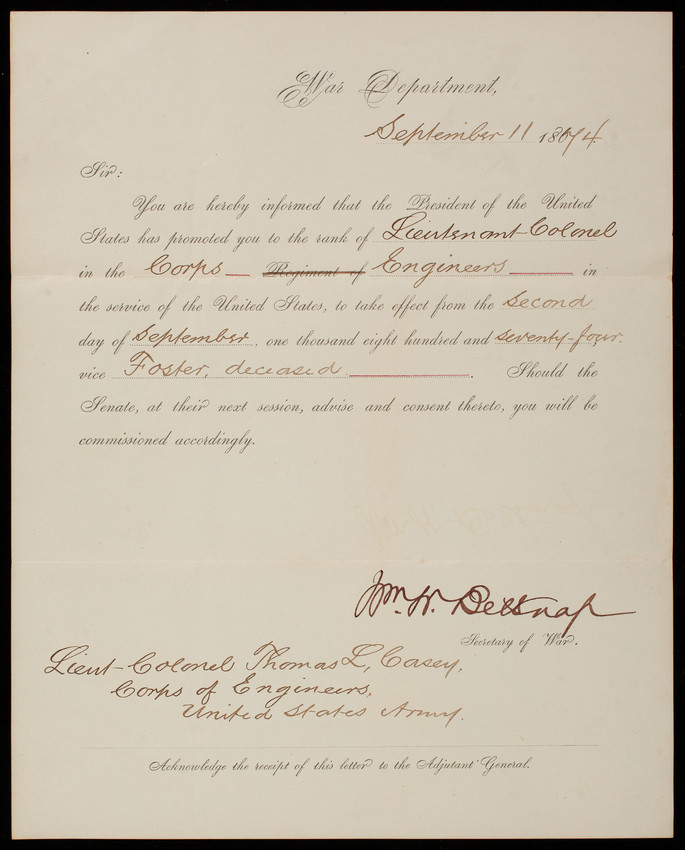 War Department,
September 11 1874.
Sir:
You are hereby informed that the President of the United
States has promoted you to the rank of Lieutenant-Colonel
in the Corps Regiment of Engineers in
the service of the United States, to take effect from the second
day of September, one thousand eight hundred and seventy-four.
vice Foster, deceased. Should the
Senate, at their next session, advise and consent thereto, you will be
commissioned accordingly.
Wm. W. Belknap
Secretary of War.
Lieut-Colonel Thomas L. Casey,
Corps of Engineers,
United States Army.
Acknowledge the receipt of this letter to the Adjutant General.